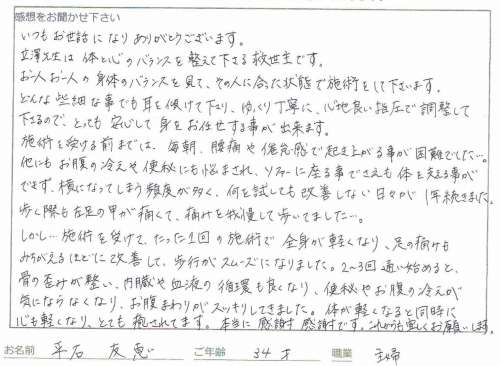 感想をお聞かせ下さい
いつもお世話になりありがとうございます。
立澤先生は 体と心のバランスを整えて下さる救世主です。
お一人お一人の身体のバランスを見て、その人に合った状態で施術をして下さいます。
どんな些細な事でも耳を傾けて下さり、ゆっくり丁寧に、心地良い指圧で調整して
下さるので、とっても安心して身をお任せする事が出来ます。
施術を受ける前までは、毎朝、腰痛や倦怠感で起き上がる事が困難でした…。
他にもお腹の冷えや便秘にも悩まされ、ソファーに座る事でさえも体を支える事が
できず、横になってしまう頻度が多く、何を試しても改善しない日々が1年続きました。
歩く際も左足の甲が痛くて、痛みを我慢して歩いてました…。
しかし…施術を受けて、たった1回の施術で全身が軽くなり、足の痛みも
みちがえるほどに改善して、歩行がスムーズになりました。2〜3回通い始めると、
骨の歪みが整い、内臓や血液の循環も良くなり、便秘やお腹の冷えが
気にならなくなり、お腹まわりがスッキリしてきました。体が軽くなると同時に
心も軽くなり、とても癒されてます。本当に感謝感謝です。これからも宜しくお願いします。
お名前 平石 友恵 ご年齢 34才 職業 主婦